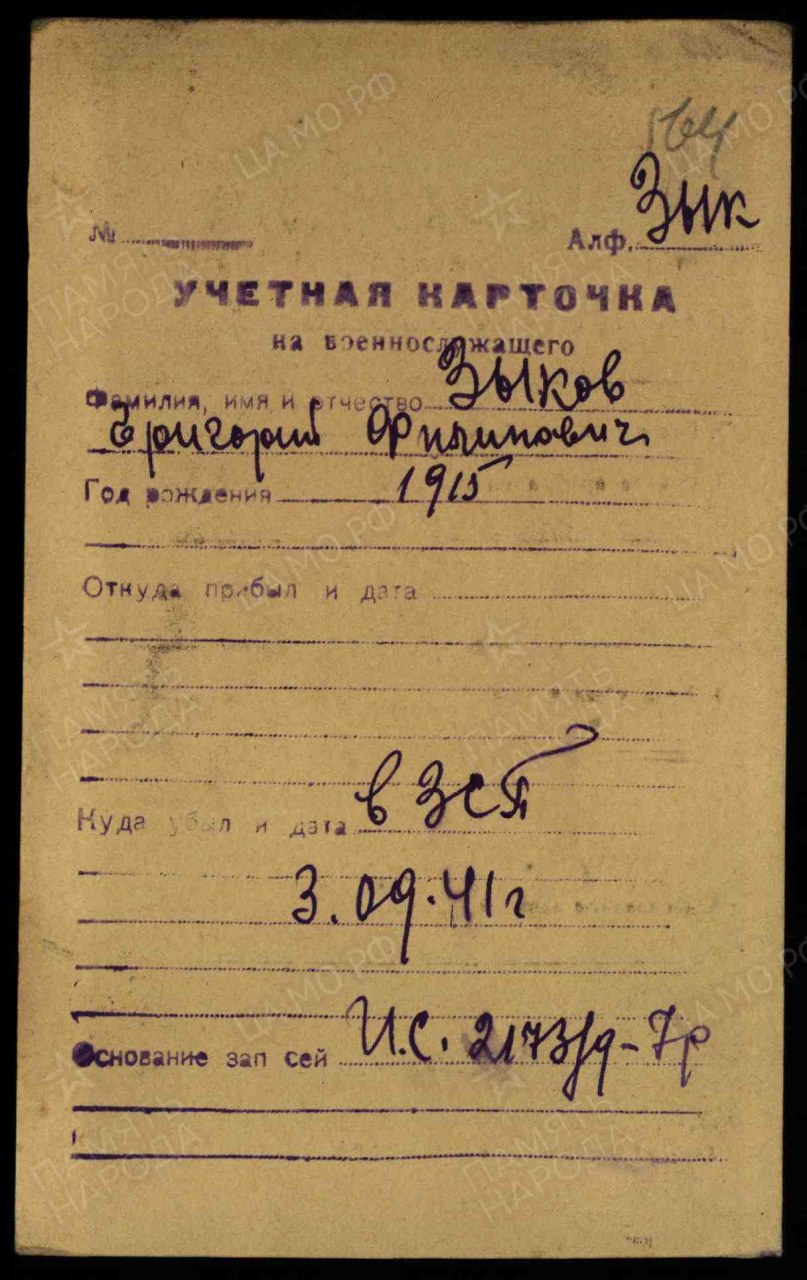 №
Алф. Зык
УЧЕТНАЯ КАРТОЧКА
на военнослужащего
Фамилия, имя и отчество Зыков
Григорий Филипович
Год рождения 1915
Откуда прибыл и дата
Куда убыл и дата в ЗСП
3.09.41г
Основание зап сей И.С. 2173/9-7р
ЦА МО РФ
ПАМЯТЬ
НАРОДА